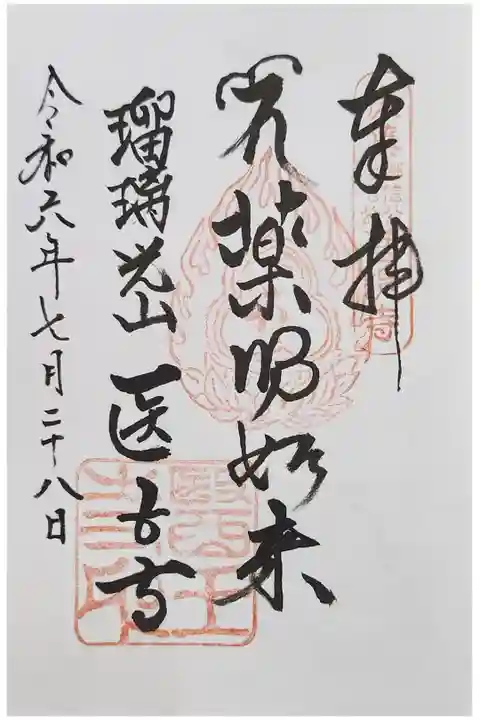 奉拝
薬師如来
瑠璃光山 医王寺
令和六年七月二十八日